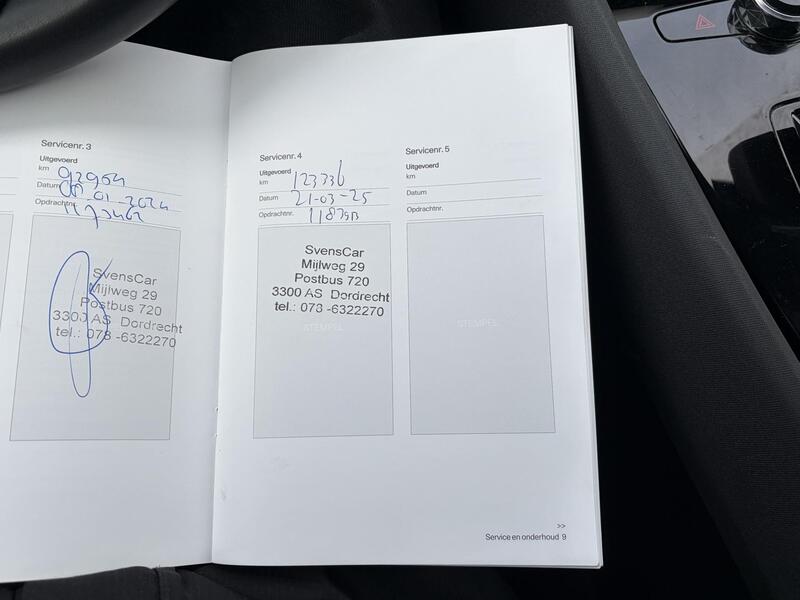 Servicenr. 3
Uitgevoerd
km 92904
Datum 01-2024
Opdrachtnr.
SvensCar
Mijlweg 29
Postbus 720
3300 AS Dordrecht
tel.: 078 -6322270
Servicenr. 4
Uitgevoerd
km 123336
Datum 21-03-25
Opdrachtnr.
SvensCar
Mijlweg 29
Postbus 720
3300 AS Dordrecht
tel.: 078 -6322270
STEMPEL
Servicenr. 5
Uitgevoerd
km
Datum
Opdrachtnr.
STEMPEL
>>
Service en onderhoud 9